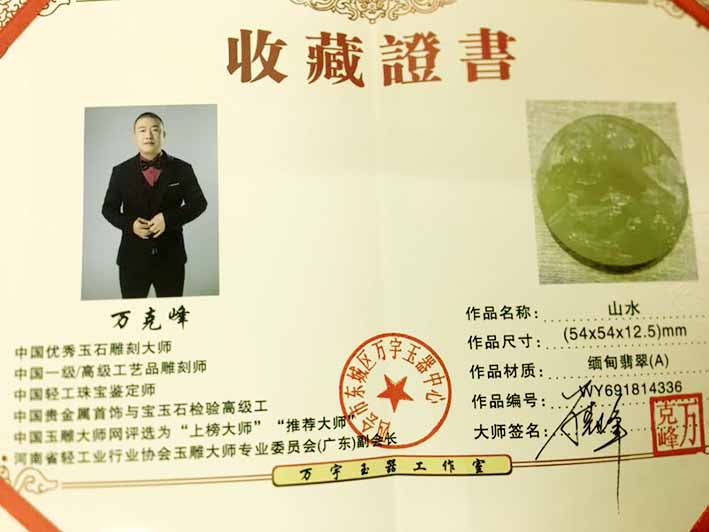 收藏證書
万克峰
中国优秀玉石雕刻大师
中国一级/高级工艺品雕刻师
中国轻工珠宝鉴定师
中国贵金属首饰与宝玉石检验高级工
中国玉雕大师网评选为“上榜大师”“推荐大师”
河南省轻工业行业协会玉雕大师专业委员会(广东)副会长
作品名称: 山水
作品尺寸: (54x54x12.5)mm
作品材质: 缅甸翡翠(A)
作品编号: WY691814336
大师签名: 万克峰
万克峰
四会市东城区万宇玉器中心
万宇玉器工作室